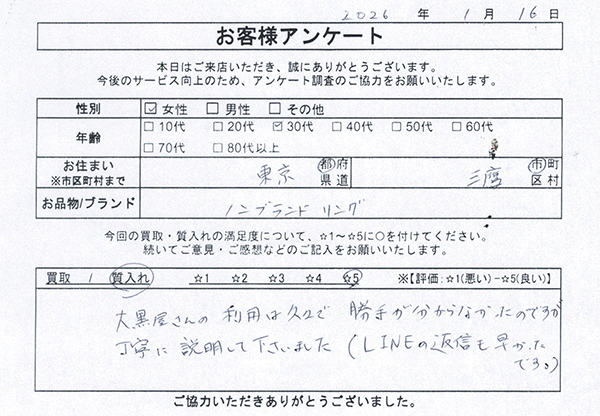 2026 年 1 月 16 日
お客様アンケート
本日はご来店いただき、誠にありがとうございます。
今後のサービス向上のため、アンケート調査のご協力をお願いいたします。
性別 ☑女性 □男性 □その他
年齢 □10代 □20代 ☑30代 □40代 □50代 □60代
□70代 □80代以上
お住まい 東京 都府 三鷹 市町
※市区町村まで 県道 区村
お品物/ブランド ノンブランド リング
今回の買取・質入れの満足度について、☆1~☆5に○を付けてください。
続いてご意見・ご感想などのご記入をお願いいたします。
買取 / 質入れ ☆1 ☆2 ☆3 ☆4 ☆5 ※【評価:☆1(悪い)-☆5(良い)】
大黒屋さんの利用は久々で 勝手が分からなかったのですが
丁寧に説明して下さいました(LINEの返信も早かった
です。)
ご協力いただきありがとうございました。